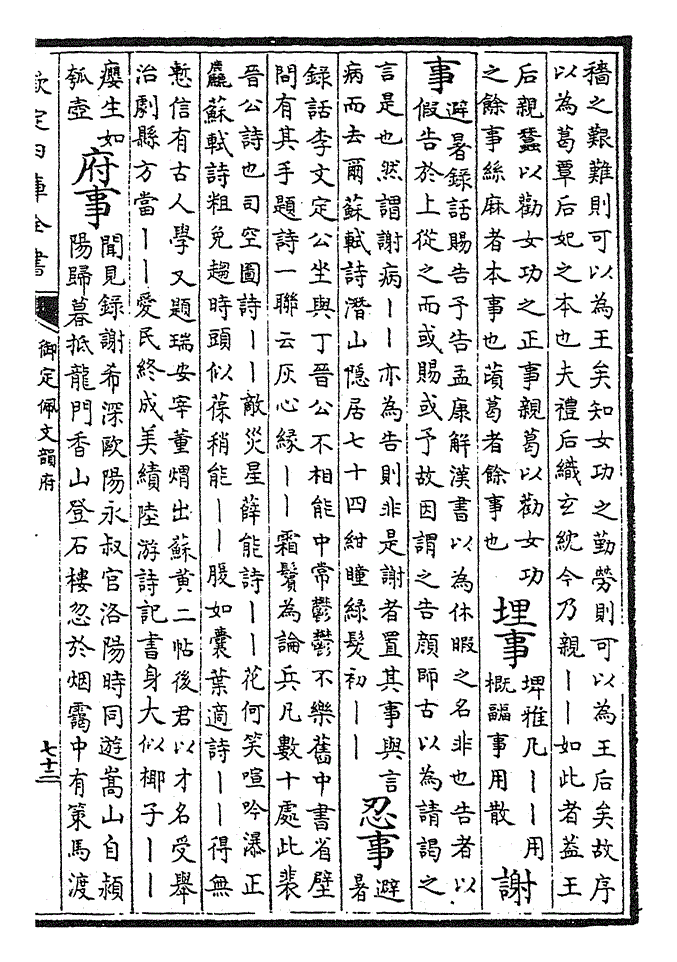 穡之艱難則可以為王矣知女功之勤勞則可以為王后矣故序
以為葛覃后妃之本也夫禮后織玄紞今乃親丨丨如此者葢王
后親蠶以勸女功之正事親葛以勸女功
之餘事絲麻者本事也蕡葛者餘事也
埋事
埤雅凡丨丨用
概疈事用散
謝
事
避暑録話賜告予告孟康解漢書以為休暇之名非也告者以
假告於上從之而或賜或予故因謂之告顔師古以為請謁之
言是也然謂謝病丨丨亦為告則非是謝者置其事與言
病而去爾蘇軾詩潛山隱居七十四紺瞳緑髮初丨丨
忍事
避
暑
録話李文定公坐與丁晉公不相能中常鬱鬱不樂舊中書省壁
間有其手題詩一聯云灰心縁丨丨霜鬢為論兵凡數十處此裴
晉公詩也司空圖詩丨丨敵災星薛能詩丨丨花何笑喧吟瀑正
麤蘇軾詩粗免趨時頭似葆稍能丨丨腹如囊葉適詩丨丨得無
慙信有古人學又題瑞安宰董煟出蘇黄二帖後君以才名受舉
治劇縣方當丨丨愛民終成美績陸游詩記書身大似椰子丨丨
癭生如
瓠壺
府事
聞見録謝希深歐陽永叔官洛陽時同遊嵩山自潁
陽歸暮抵龍門香山登石樓忽於烟靄中有策馬渡
欽定四庫全書
御定佩文韻府
七十二